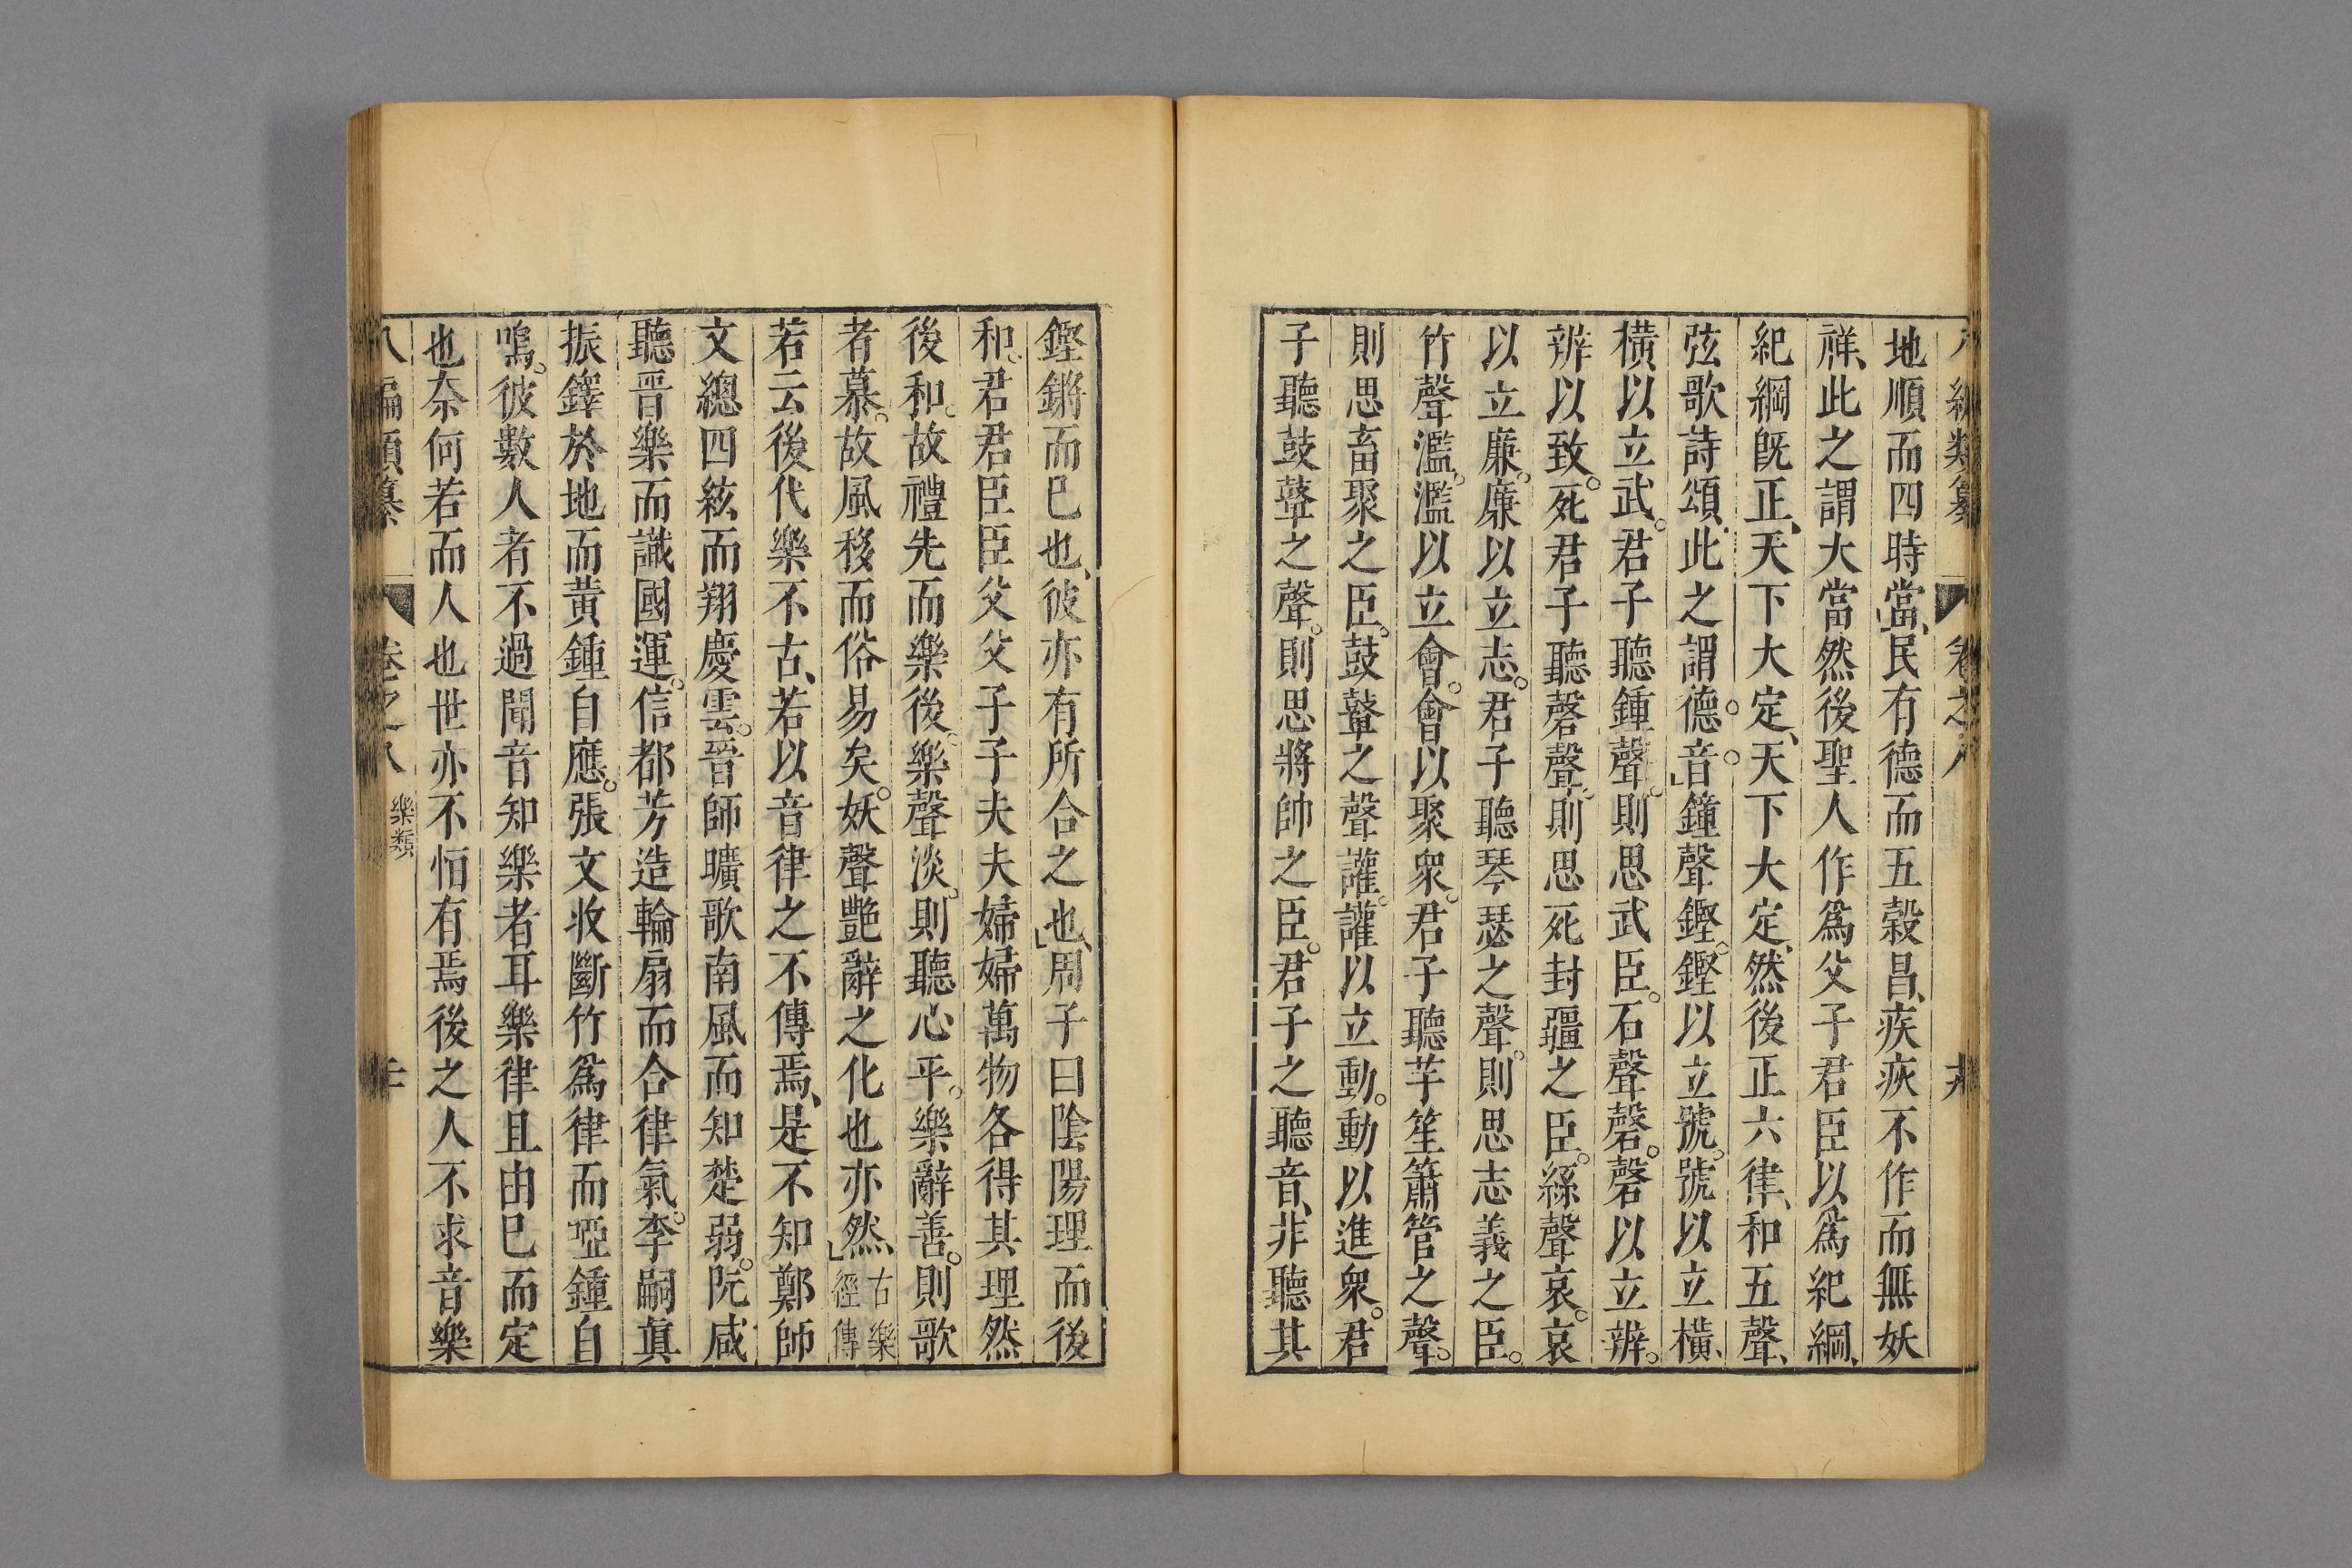 八編類纂 卷之八
地順而四時當、民有德而五穀昌、疾疢不作而無妖
祥、此之謂大當然後聖人作爲父子君臣以爲紀綱、
紀綱旣正、天下大定、天下大定、然後正六律、和五聲、
弦歌詩頌、此之謂德。音。鐘聲鏗。鏗以立號。號以立橫、
橫以立武。君子聽鍾聲。則思武臣。石聲磬。磬以立辨。
辨以致。死君子聽磬聲。則思死封疆之臣。絲聲哀。哀
以立廉。廉以立志。君子聽琴瑟之聲。則思志義之臣。
竹聲濫。濫以立會。會以聚衆。君子聽竽笙簫管之聲。
則思畜聚之臣。鼓鼙之聲讙。讙以立動。動以進衆。君
子聽鼓鼙之聲。則思將帥之臣。君子之聽音、非聽其
鏗鏘而已也、彼亦有所合之也、周子曰陰陽理而後
和。君君臣臣父父子子夫夫婦婦萬物各得其理然
後和。故禮先而樂後。樂聲淡。則聽心平。樂辭善。則歌
者慕。故風移而俗易矣。妖聲艶辭之化也亦然、古樂經傳
若云後代樂不古、若以音律之不傳焉、是不知鄭師
文總四絃而翔慶雲。晉師曠歌南風而知楚弱。阮咸
聽晋樂而識國運。信都芳造輪扇而合律氣。李嗣眞
振鐸於地而黃鍾自應。張文收斷竹爲律而啞鍾自
鳴。彼數人者不過聞音知樂者耳樂律且由巳而定
也奈何若而人也世亦不恒有焉後之人不求音樂
八編類纂 卷之八 樂類 二十